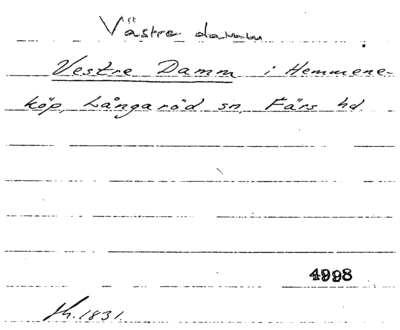 Västre damm
Vestre Damm i Hemmene-
köp, Långaröd sn, Färs hd.
4998
1831